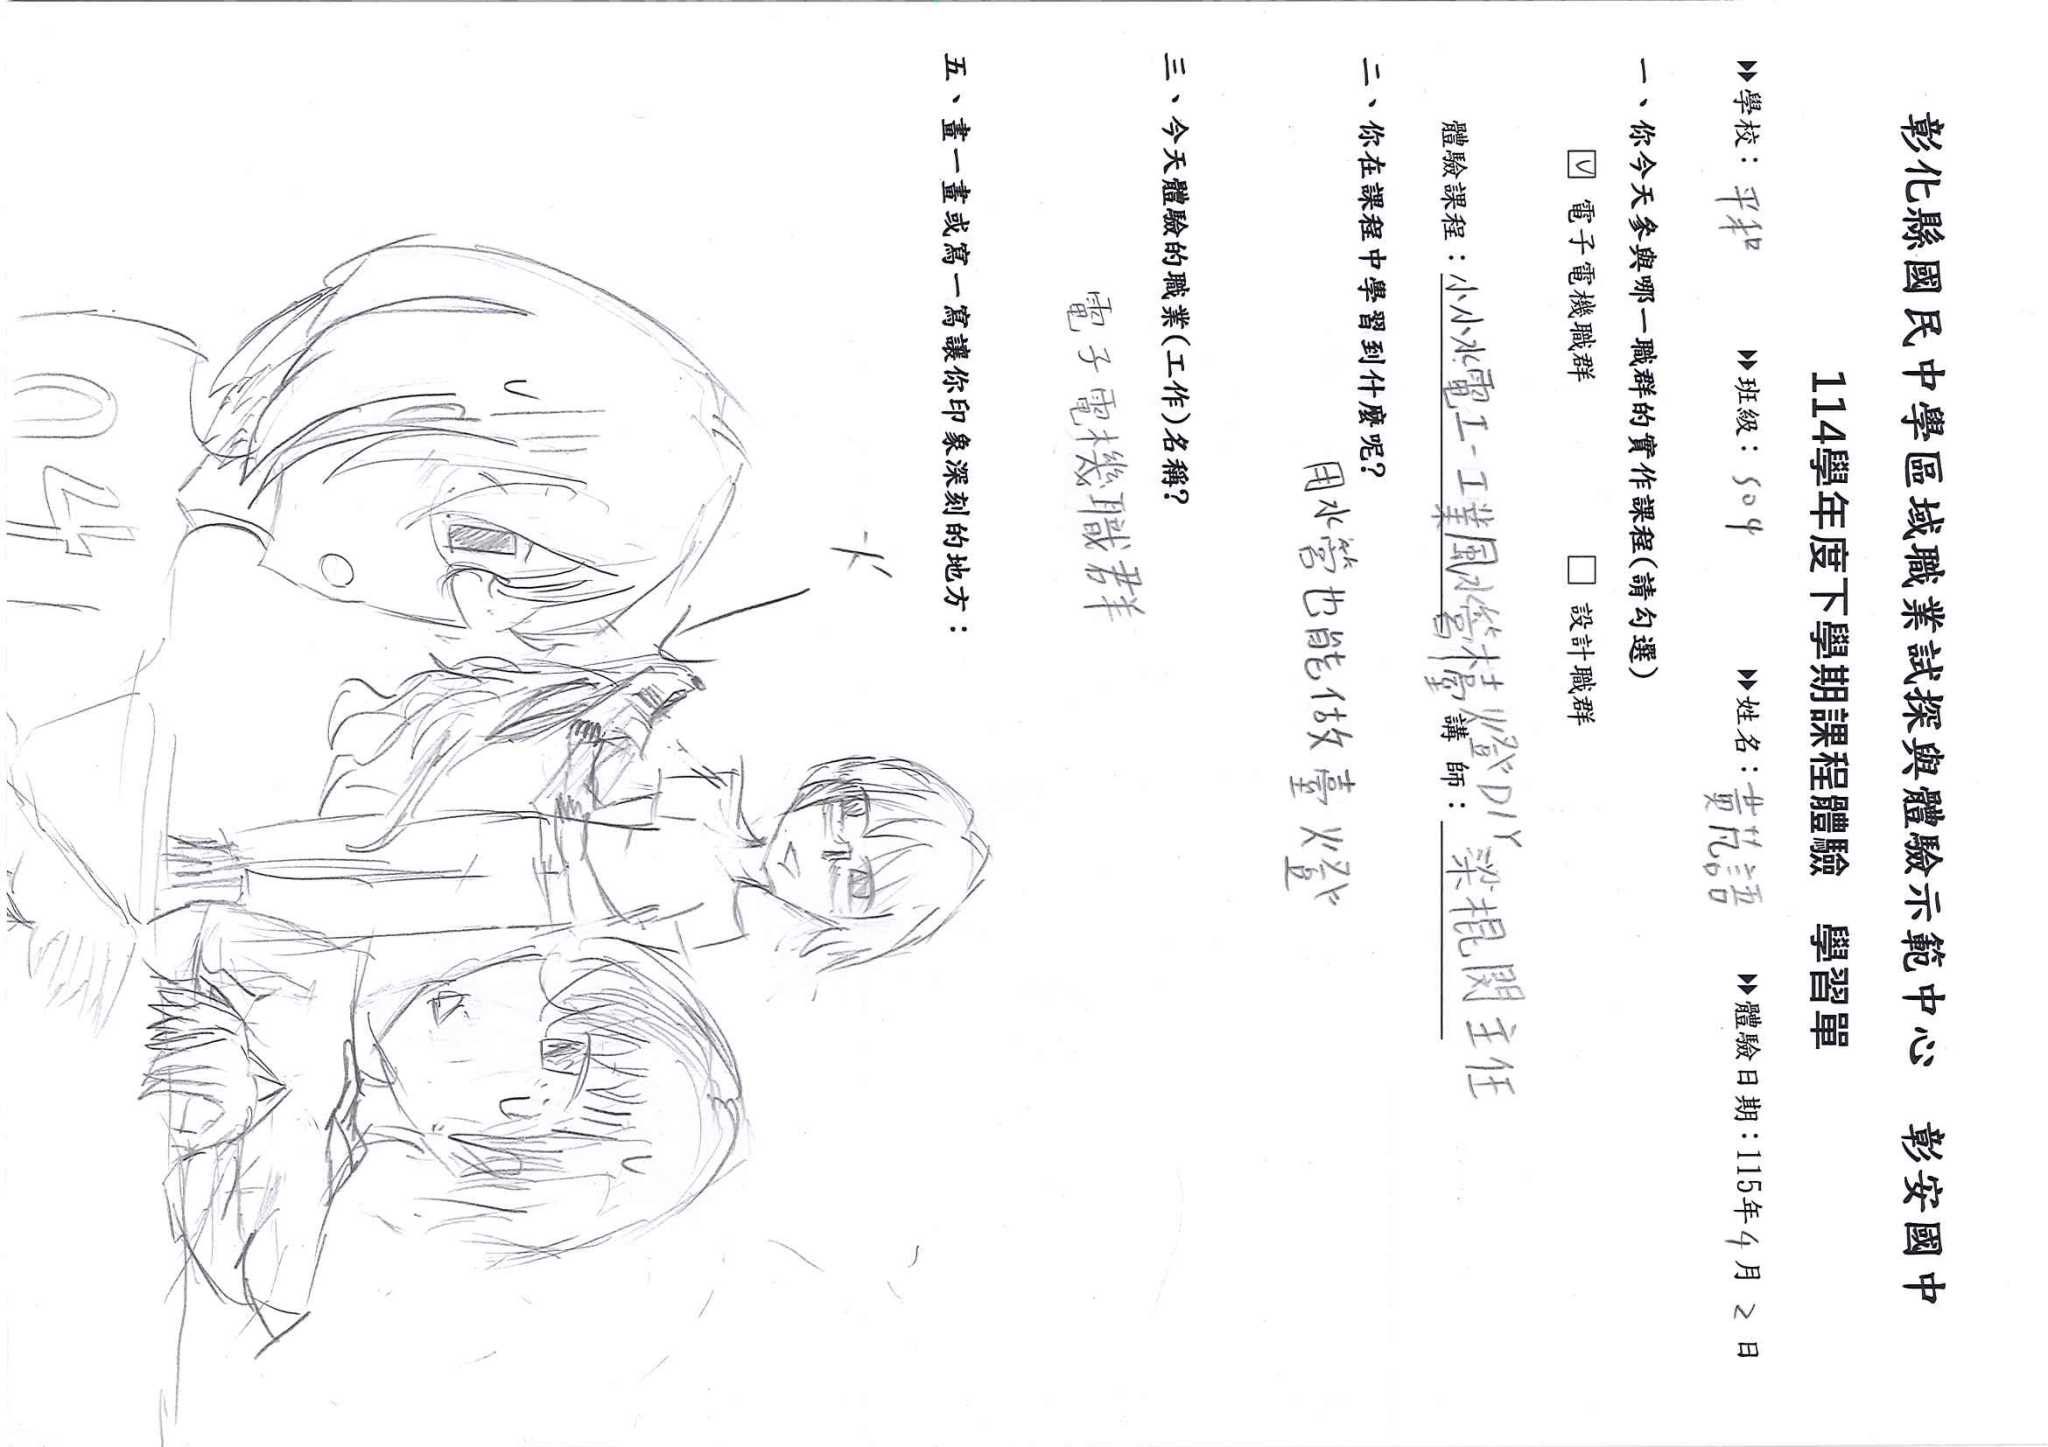 彰化縣國民中學區域職業試探與體驗示範中心 彰安國中
114學年度下學期課程體驗 學習單
▶▶學校：平和 ▶▶班級：504 ▶▶姓名：黃凡語 ▶▶體驗日期：115年4月2日
一、你今天參與哪一職群的實作課程(請勾選)
☑ 電子電機職群 □ 設計職群
體驗課程：小小水電工-工業風水管檯燈DIY 講師：梁棍閔主任
二、你在課程中學習到什麼呢？
用水管也能做臺燈
三、今天體驗的職業(工作)名稱？
電子電機職群
五、畫一畫或寫一寫讓你印象深刻的地方：
04